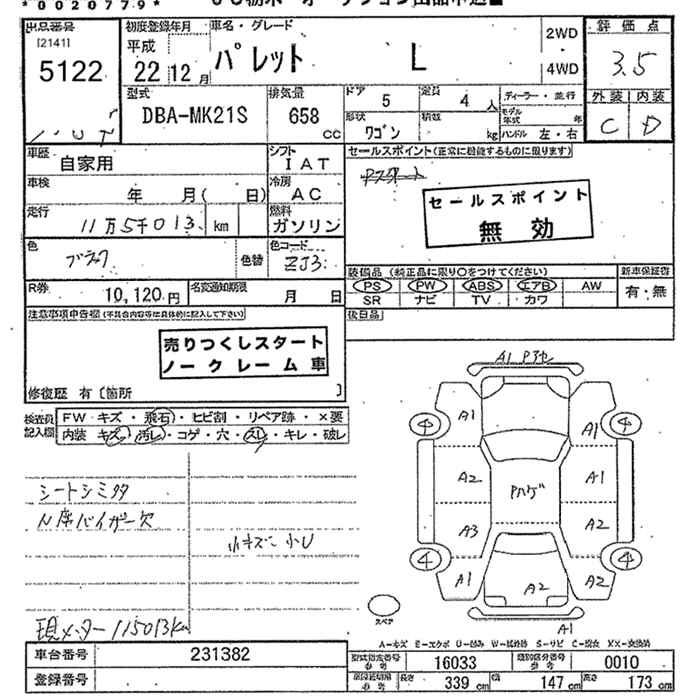 *0020779*
出品番号
[2141]
5122
初度登録年月
平成
22 12月
車名・グレード
パレット L
2WD
・
4WD
評価点
3.5
外装 内装
C D
型式
DBA-MK21S
排気量
658
CC
ドア
5
定員
4人
ディーラー・並行
モデル年式 年
形状
ワゴン
積載
kg
ハンドル 左・右
車歴
自家用
シフト
IAT
車検
年 月( 日)
冷房
AC
走行
11万5千013 km
燃料
ガソリン
色
ブラック
色替
色コード
ZJ3
セールスポイント(正常に機能するものに限ります)
セールスポイント
無効
装備品(純正品に限り○をつけてください)
PS PW ABS エアB AW
SR ナビ TV カワ
新車保証書
有・無
R券
10,120円
名変通知期限
月 日
後日品
注意事項申告欄(不具合内容等は具体的に記入して下さい)
売りつくしスタート
ノークレーム車
修復歴 有〔箇所 〕
検査員記入欄
FW キズ・飛石・ヒビ割・リペア跡・×要
内装 キズ・汚れ・コゲ・穴・スレ・キレ・破レ
シートシミ
N席バイザー欠
小キズ 小U
現メーター 115013km
A1
A1 A1
4 4
A2 A1
Pハゲ
A3 A2
4 4
A1 A2 A2
A1
スペア
A-キズ E-エクボ U-凹み W-波外修 S-サビ C-腐食 XX-交換済
車台番号
231382
登録番号
型式指定番号
参考
16033
類別区分番号
参考
0010
参考
長さ
339 cm
幅
147 cm
高さ
173 cm